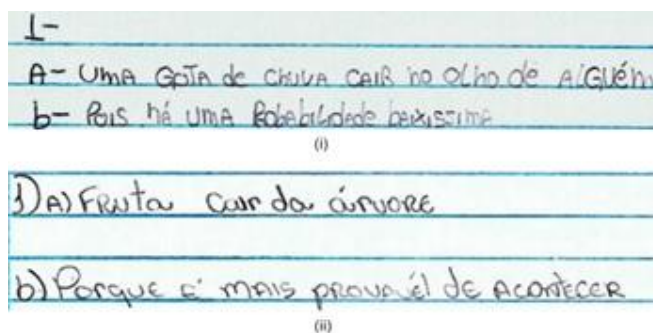 1-
A- UMA GOTA de CHUVA CAIR no OLho de AlGUém
b- Pois há UMA Probabilidade baixissima
(i)
1) A) FRUta cair da árvoRE
b) Porque é mais provavél de AcontecER
(ii)